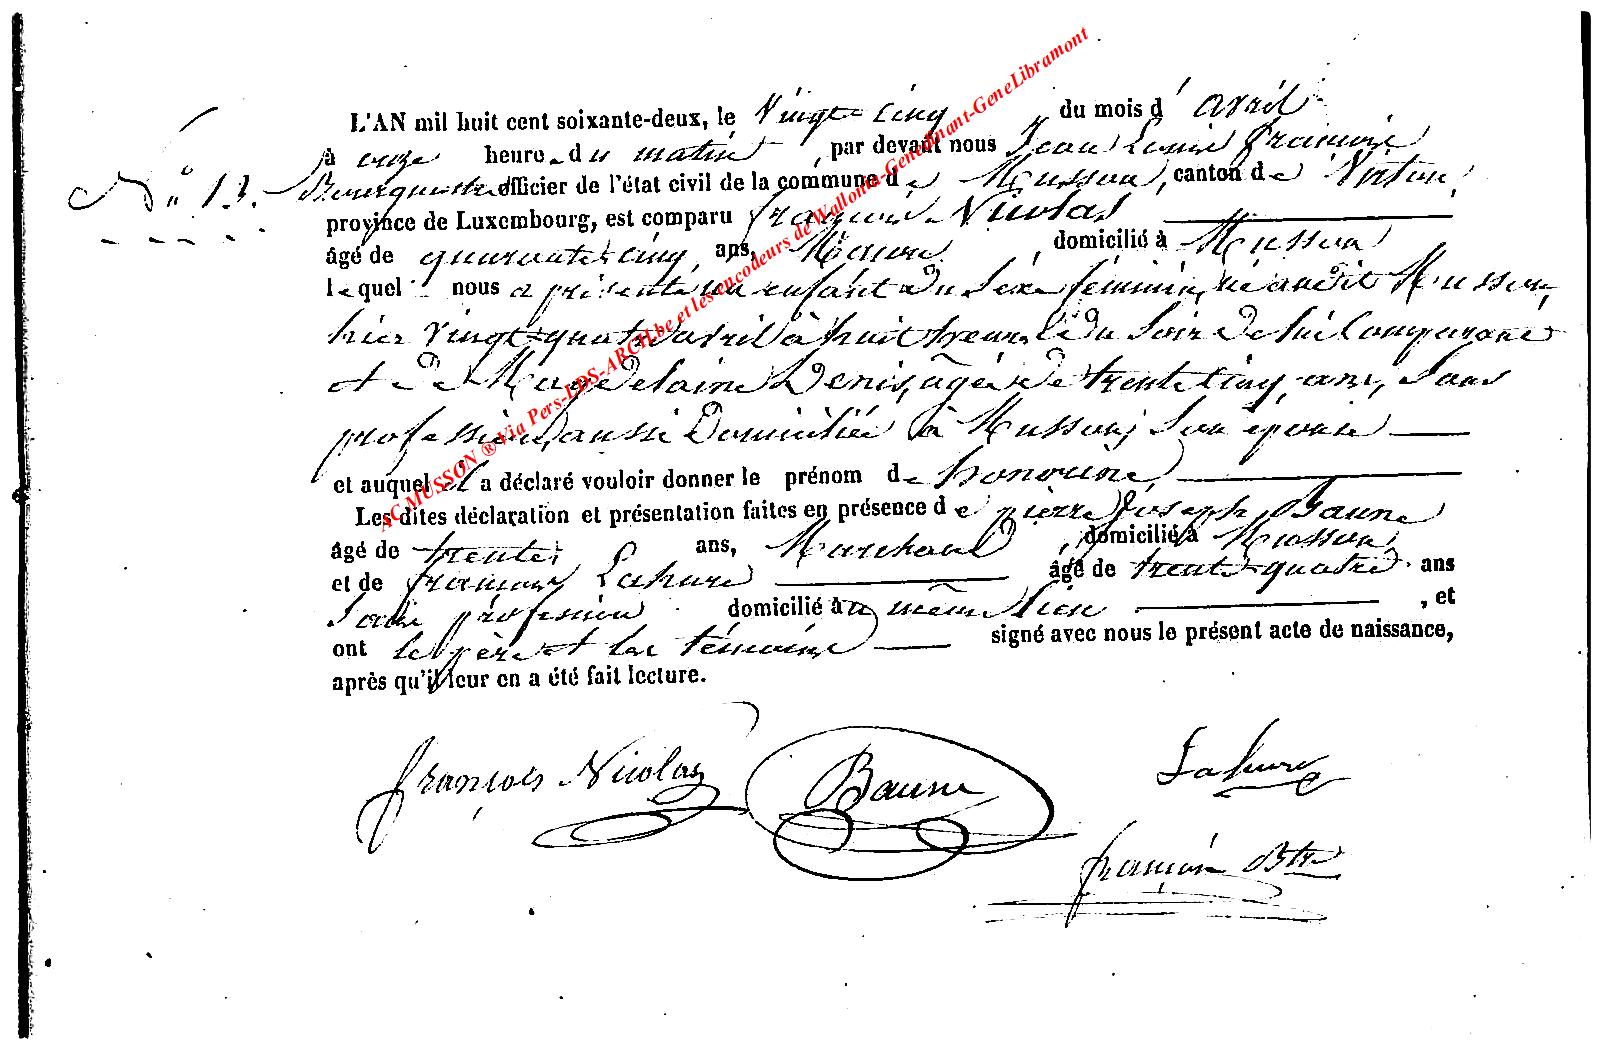 L'AN mil huit cent soixante-deux, le Vingt cinq du mois d' avril
à onze heure du matin, par devant nous Jean Louis françois
N° 13. Bourguemestre officier de l'état civil de la commune de Musson, canton de Virton,
province de Luxembourg, est comparu françois Nicolas
âgé de quarante cinq ans, Maçon domicilié à Musson
lequel nous a présenté un enfant du sexe féminin, né audit Musson,
hier vingt-quatre avril à huit heures du soir de lui Comparant
et de Magdelaine Denis, âgée de trente cinq ans, sans
profession aussi Domiciliée à Musson, son épouse
et auquel il a déclaré vouloir donner le prénom de honorine
Les dites déclaration et présentation faites en présence de pierre Joseph Baune
âgé de trente ans, Marchand, domicilié à Musson
et de françois Lahure âgé de trente-quatre ans
sans profession domicilié à même lieu, et
ont le père et les témoins signé avec nous le présent acte de naissance,
après qu'il leur en a été fait lecture.
françois Nicolas Baune Lahure
françois Btre
AC MUSSON ® Via Pers-LDS-ARCH.be et les encodeurs de Wallonia-Genedinant-GeneLibramont